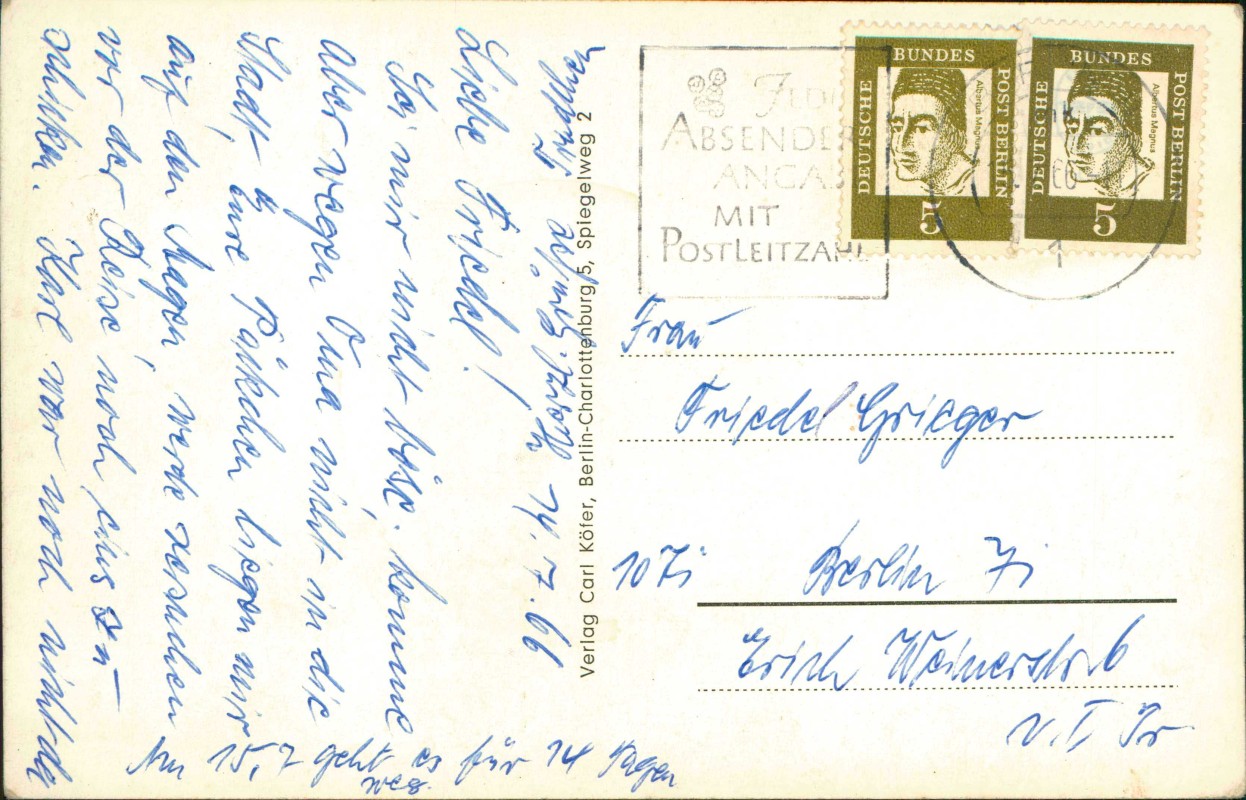 Liebe Friedel!
Sei mir nicht böse. komme
Aber wegen Oma nicht in die
Stadt, Eure Päkchen liegen mir
auf den Magen, werde versuchen
vor der Reise noch eins zu
schicken. Karl war noch nicht da
Am 15.7 geht es für 14 Tagen
weg.
14.7.66
Verlag Carl Köfer, Berlin-Charlottenburg 5, Spiegelweg 2
ABSENDER
MIT
POSTLEITZAHL
DEUTSCHE BUNDES POST BERLIN
Albertus Magnus
5
DEUTSCHE BUNDES POST BERLIN
Albertus Magnus
5
1
Frau
Friedel Grieger
Berlin
Erich Weinerstr. 6